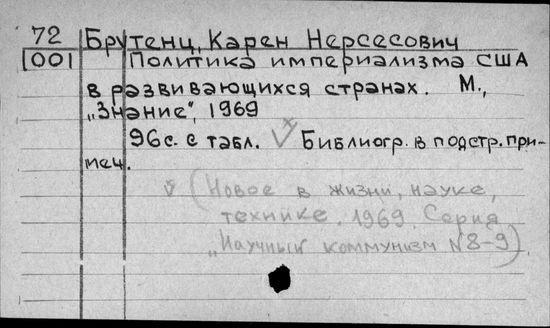 72 Брутенц, Карен Нерсесович
1001 Политика империализма США
в развивающихся странах. М.,
„Знание", 1969
96 с. с табл. Библиогр. в подстр. при-
меч.
(Новое в жизни, науке,
технике. 1969. Серия
„Научный коммунизм N 8-9)